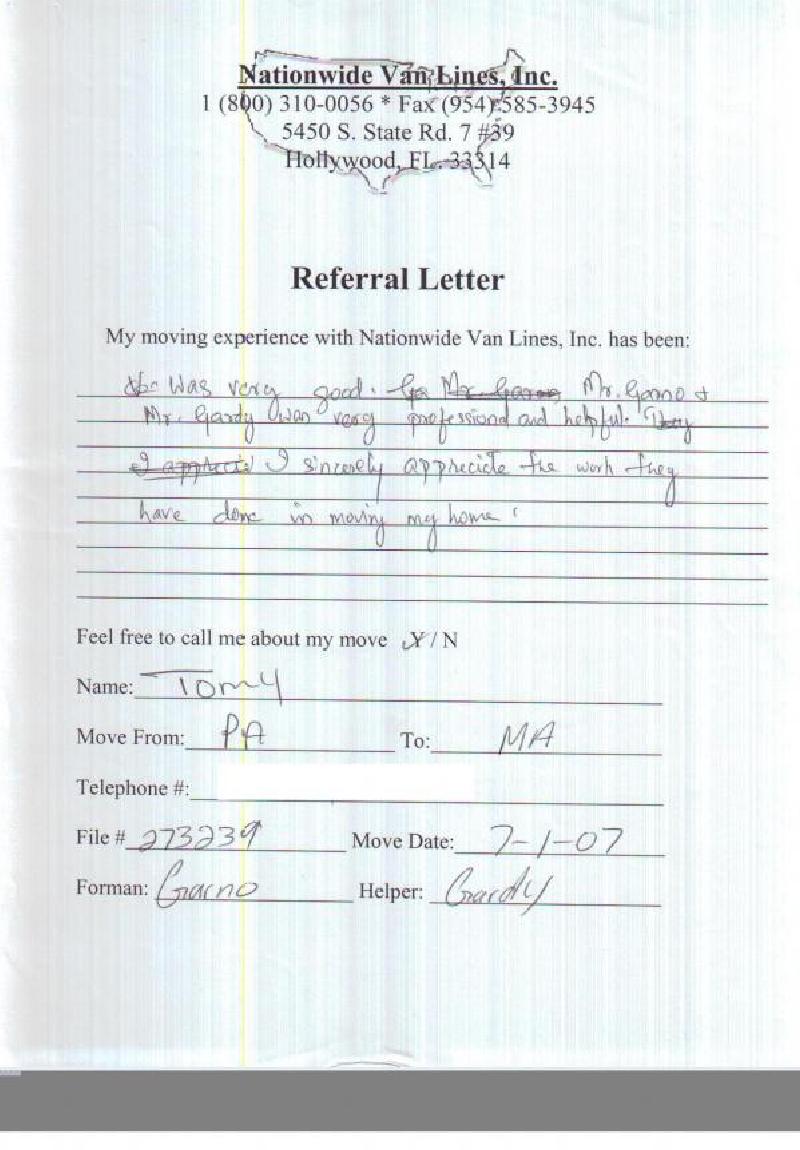 Nationwide Van Lines, Inc.
1 (800) 310-0056 * Fax (954) 585-3945
5450 S. State Rd. 7 #39
Hollywood, FL. 33314
Referral Letter
My moving experience with Nationwide Van Lines, Inc. has been:
Was very good. Mr. Garno +
Mr. Gardy was very professional and helpful. They
I sincerely apprecicte the work they
have done in moving my home
Feel free to call me about my move Y / N
Name: Tomy
Move From: PA To: MA
Telephone #:
File # 273239 Move Date: 7-1-07
Forman: Garno Helper: Gardy